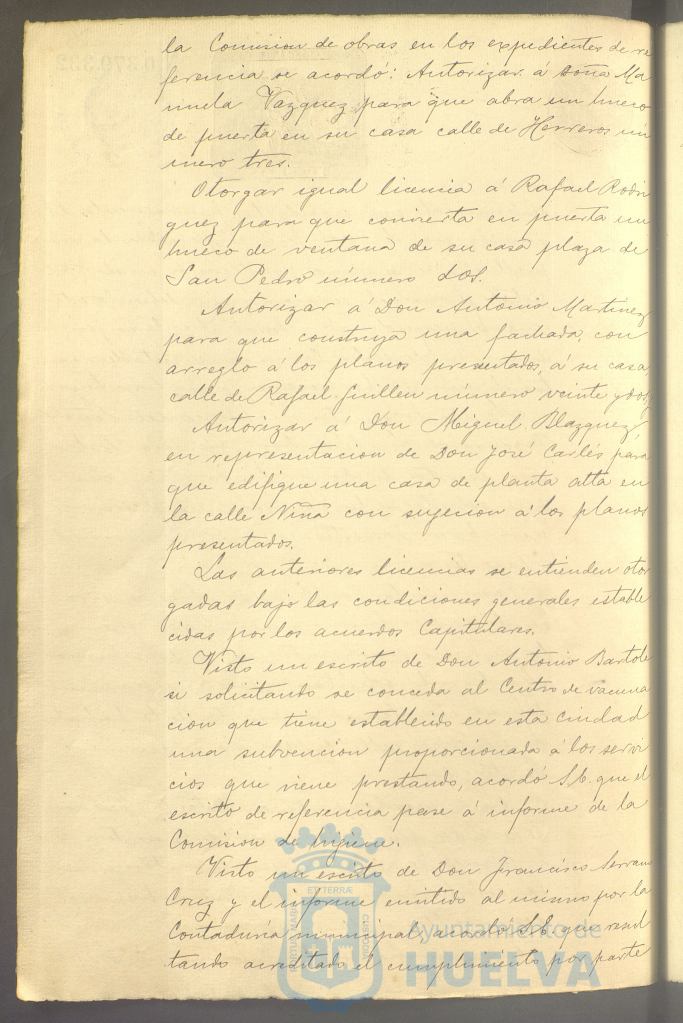 la Comision de obras en los expedientes de re
ferencia se acordó: Autorizar á doña Ma
nuela Vazquez para que abra un hueco
de puerta en su casa calle de Herreros nú
mero tres.
Otorgar igual licencia á Rafael Rodri
guez para que convierta en puerta un
hueco de ventana de su casa plaza de
San Pedro número dos.
Autorizar á Don Antonio Martinez
para que construya una fachada, con
arreglo á los planos presentados, á su casa
calle de Rafael Guillen número veinte y dos
Autorizar á Don Miguel Blazquez
en representacion de Don José Carlés para
que edifique una casa de planta alta en
la calle Niña con sujecion á los planos
presentados.
Las anteriores licencias se entienden otor
gadas bajo las condiciones generales estable
cidas por los acuerdos Capitulares.
Visto un escrito de Don Antonio Bartole
si solicitando se conceda al Centro de vacuna
cion que tiene establecido en esta ciudad
una subvencion proporcionada á los servi
cios que viene prestando, acordó S.E. que el
escrito de referencia pase á informe de la
Comision de higiene.
Visto un escrito de Don Francisco Serrano
Cruz y el informe emitido al mismo por la
Contaduría municipal, acordó S.E. que resul
tando acreditado el cumplimiento por parte
Ayuntamiento de
HUELVA